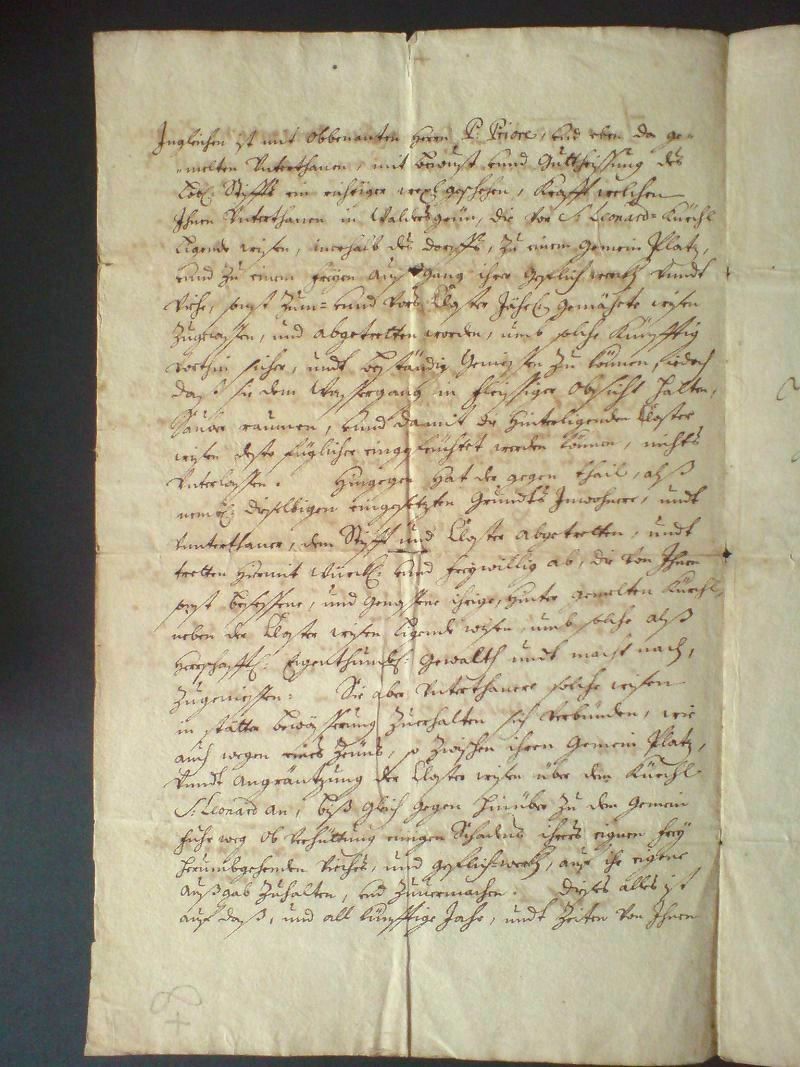 Ingleichen ist mit Obbenanten Herrn P: Priore, und eben da ge=
=melten Unterthanen, mit bewust und Guttheissung des
Löbl: Stiffts ein richtiger wexl geschehen, Krafft welchen
Ihnen Unterthanen in Waldersgrün, die vor S: Leonard= Kürchl
Ligende wisen, inerhalb des dorffs, zu einem Gemein Platz,
und zu einem freyen Auß Gang ihres Geflichwercks undt
Viehe, sonst zum= und vors Closter Jährl: Gemähete wisen
Zugelassen, und abgetretten worden, umb solche Künfftig
vorthin sicher, undt beständig Geniessen zu können, iedoch
daß sie dem Wassergang in fleissiger Obsicht halten,
Sauber raumen, und damit die Hinterligenden Closter
wisen desto füglicher eingefeuchtet werden können, nichts
Unterlassen. Hingegen hat der gegen theil, alß
neml: dieselbigen eingesetzten Grundts Inwohnere, undt
Unterthaner, dem Stifft und Closter abgetretten, undt
tretten hiermit Würckl: und freywillig ab, die von Ihnen
sonst besessene, und Genossene ihrige, hinter gemelten Kürchl,
neben der Closter wisen Ligende wisen, umb solche alß
Herrschafftl: Eigenthumbl: Gewalth undt macht nach,
Zugeniessen. Sie aber Unterthanere solche wisen
in statter bewässerung Zuerhalten sich verbünden, wie
auch wegen eines Zauns, so zwischen ihren Gemein Platz,
undt Angräntzung der Closter wisen über dem Kürchl
S: Leonard an, biß gleich gegen hinüber zu dem Gemein
fuhr weg ob verhüttung einigen Schadens ihres eignen frey
herumbgehenden Viehes, und geflichwercks, auf ihr eigene
Außgab zuhalten, und zuvermachen. Dieses alles ist
auf daß, und all künfftige Jahr, undt Zeiten von Ihnen